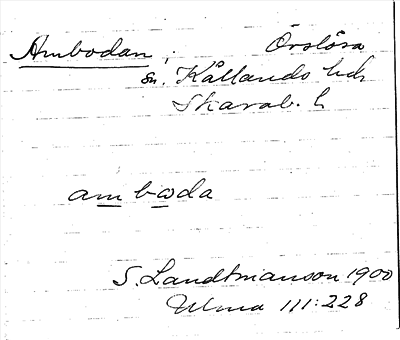 Ambodan ; Örslösa
sn. Kållands hd
Skarab. l.
am bωda
S. Landtmanson 1900
Ulma 111:228